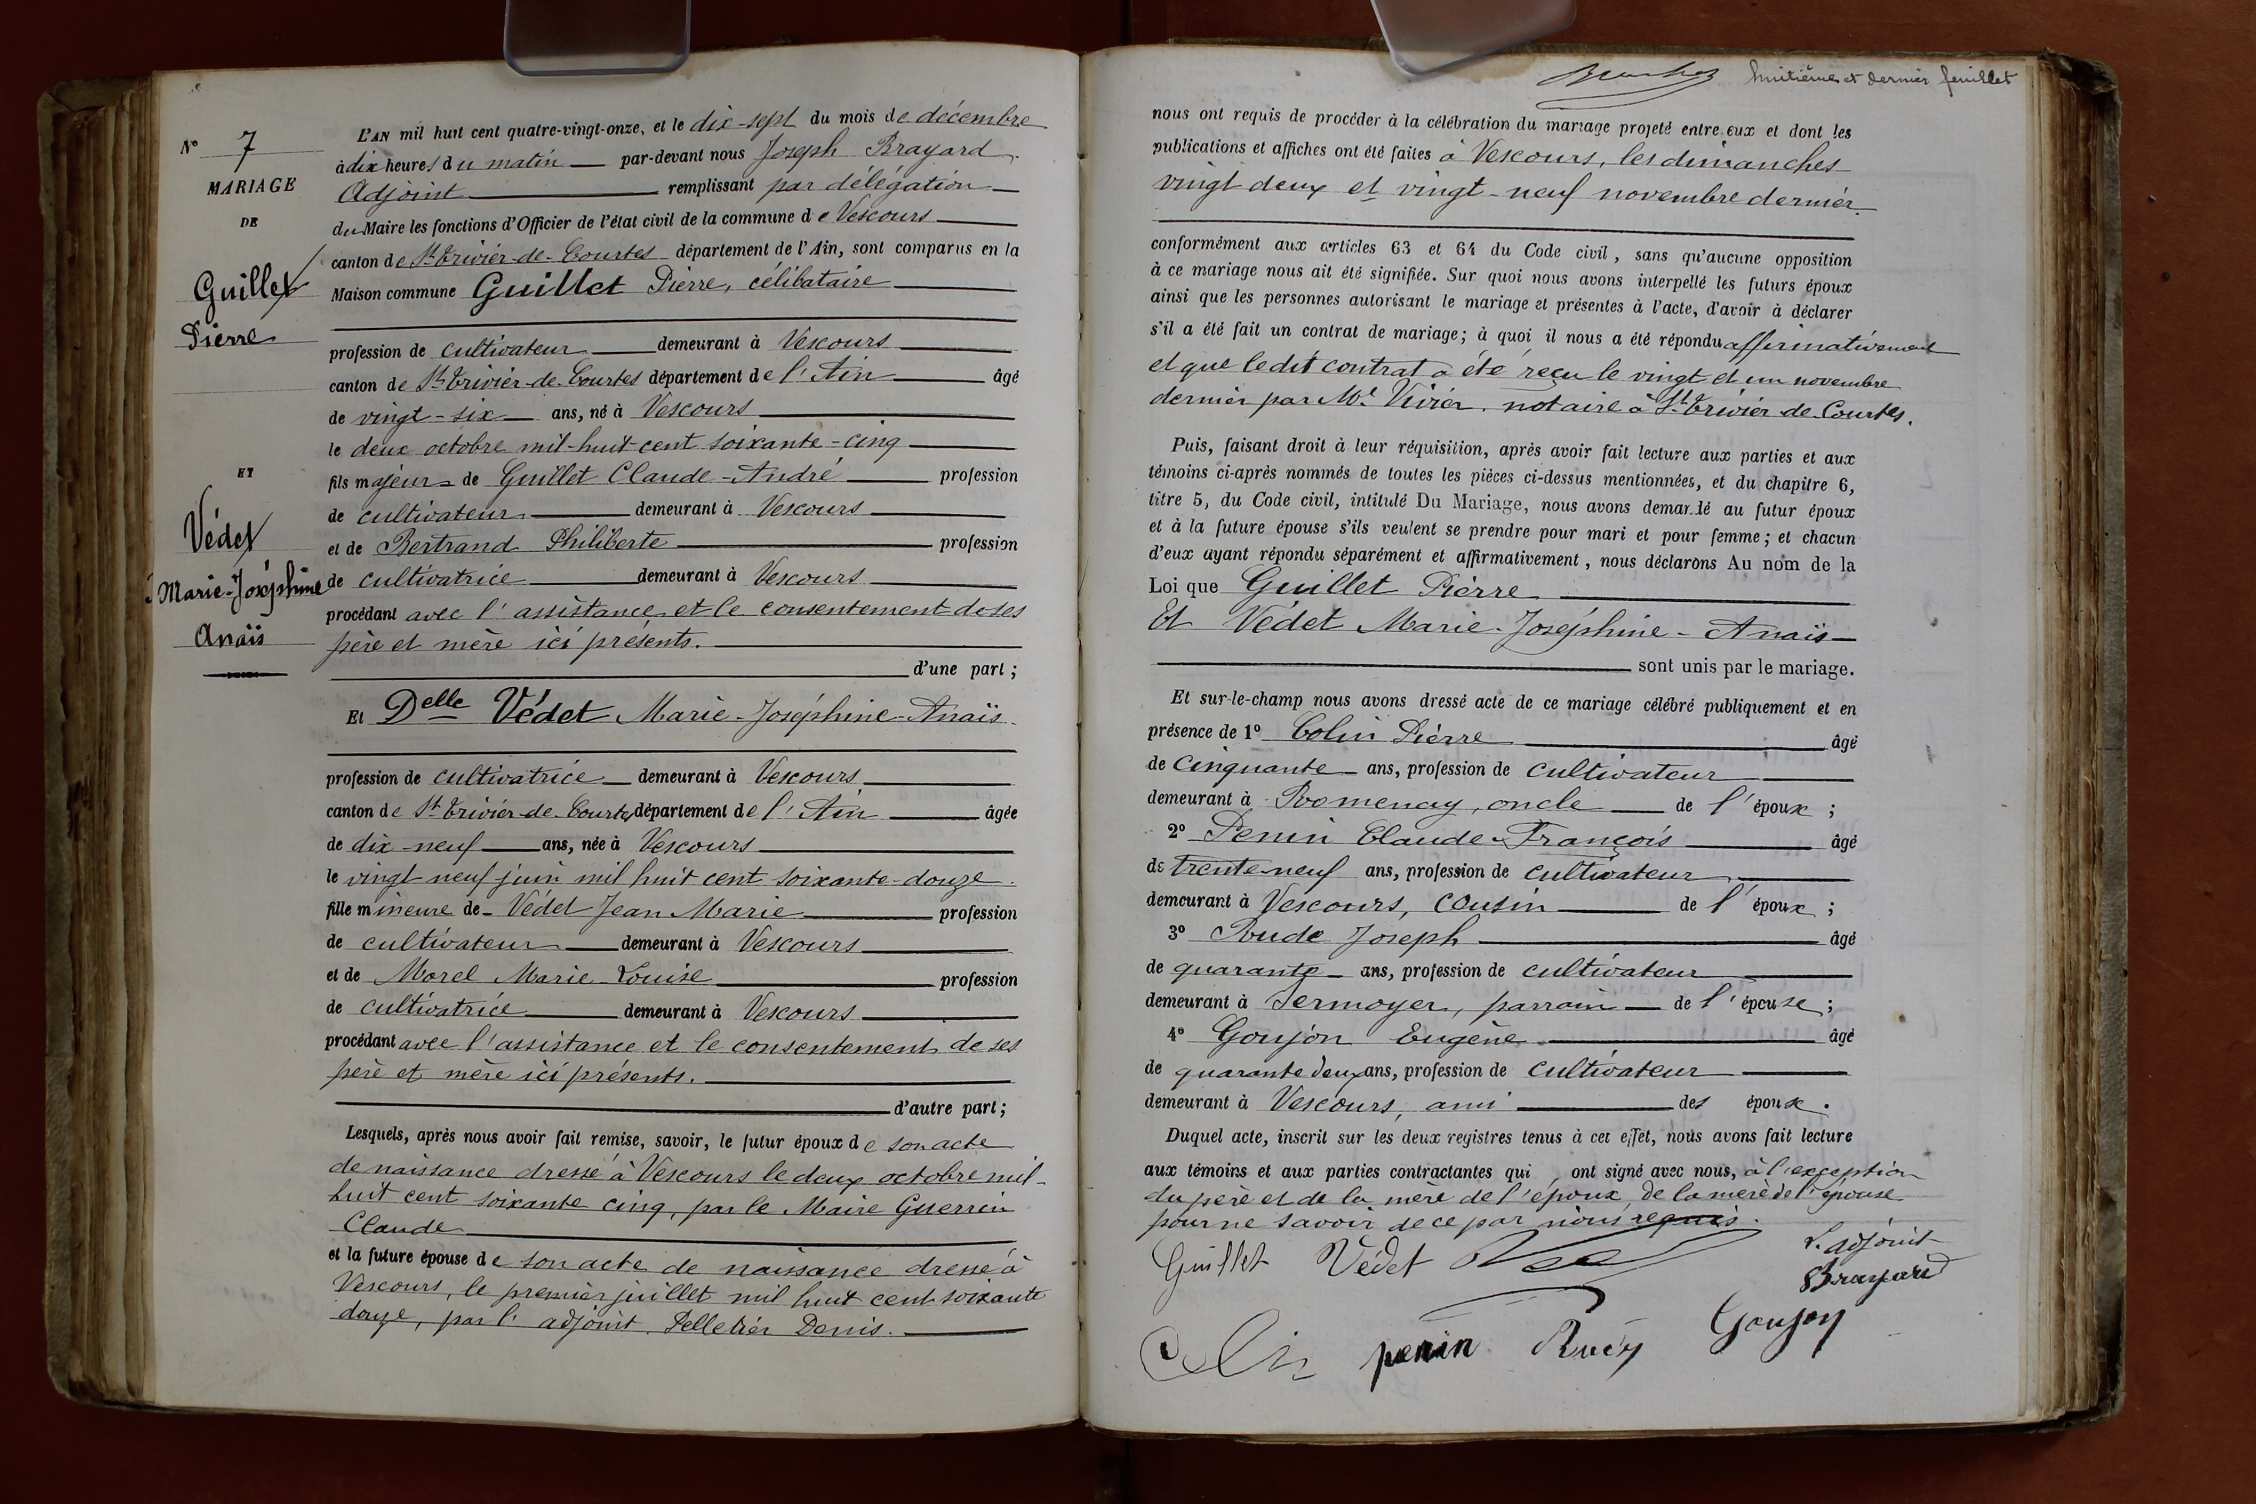 N° 7
MARIAGE
DE
Guillet
Pierre
ET
Védet
Marie-Joséphine
Anaïs
L'AN mil huit cent quatre-vingt-onze, et le dix-sept du mois de décembre
à dix heures du matin par-devant nous Joseph Brayard
Adjoint remplissant par délégation
du Maire les fonctions d'Officier de l'état civil de la commune de Vescours
canton de St Trivier-de-Courtes département de l'Ain, sont comparus en la
Maison commune Guillet Pierre, célibataire
profession de cultivateur demeurant à Vescours
canton de St Trivier-de-Courtes département de l'Ain âgé
de vingt-six ans, né à Vescours
le deux octobre mil-huit-cent soixante-cinq
fils majeur de Guillet Claude-André profession
de cultivateur demeurant à Vescours
et de Bertrand Philiberte profession
de cultivatrice demeurant à Vescours
procédant avec l'assistance et le consentement de ses
père et mère ici présents.
d'une part ;
Et Delle Védet Marie-Joséphine-Anaïs
profession de cultivatrice demeurant à Vescours
canton de St Trivier-de-Courtes département de l'Ain âgée
de dix-neuf ans, née à Vescours
le vingt-neuf juin mil huit cent soixante-douze.
fille mineure de Védet Jean Marie profession
de cultivateur demeurant à Vescours
et de Morel Marie Louise profession
de cultivatrice demeurant à Vescours
procédant avec l'assistance et le consentement de ses
père et mère ici présents.
d'autre part ;
Lesquels, après nous avoir fait remise, savoir, le futur époux de son acte
de naissance dressé à Vescours le deux octobre mil-
huit cent soixante cinq, par le Maire Guerrin
Claude
et la future épouse de son acte de naissance dressé à
Vescours, le premier juillet mil huit cent soixante
douze, par l'adjoint Pelletier Denis.
huitième et dernier feuillet
nous ont requis de procéder à la célébration du mariage projeté entre eux et dont les
publications et affiches ont été faites à Vescours, les dimanches
vingt deux et vingt-neuf novembre dernier.
conformément aux articles 63 et 64 du Code civil, sans qu'aucune opposition
à ce mariage nous ait été signifiée. Sur quoi nous avons interpellé les futurs époux
ainsi que les personnes autorisant le mariage et présentes à l'acte, d'avoir à déclarer
s'il a été fait un contrat de mariage ; à quoi il nous a été répondu affirmativement
et que ledit contrat a été reçu le vingt et un novembre
dernier par Me Vivier, notaire à St Trivier-de-Courtes.
Puis, faisant droit à leur réquisition, après avoir fait lecture aux parties et aux
témoins ci-après nommés de toutes les pièces ci-dessus mentionnées, et du chapitre 6,
titre 5, du Code civil, intitulé Du Mariage, nous avons demandé au futur époux
et à la future épouse s'ils veulent se prendre pour mari et pour femme ; et chacun
d'eux ayant répondu séparément et affirmativement, nous déclarons Au nom de la
Loi que Guillet Pierre
Et Védet Marie-Joséphine-Anaïs
sont unis par le mariage.
Et sur-le-champ nous avons dressé acte de ce mariage célébré publiquement et en
présence de 1° Colin Pierre âgé
de cinquante ans, profession de cultivateur
demeurant à Romenay, oncle de l'époux ;
2° Penin Claude-François âgé
de trente-neuf ans, profession de cultivateur
demeurant à Vescours, cousin de l'époux ;
3° Rude Joseph âgé
de quarante ans, profession de cultivateur
demeurant à Sermoyer, parrain de l'épouse ;
4° Goujon Eugène âgé
de quarante deux ans, profession de cultivateur
demeurant à Vescours, ami des époux.
Duquel acte, inscrit sur les deux registres tenus à cet effet, nous avons fait lecture
aux témoins et aux parties contractantes qui, ont signé avec nous, à l'exception
du père et de la mère de l'époux, de la mère de l'épouse
pour ne savoir de ce par nous requis.
Guillet Védet L'adjoint
Brayard
Colin penin Rudy Goujon